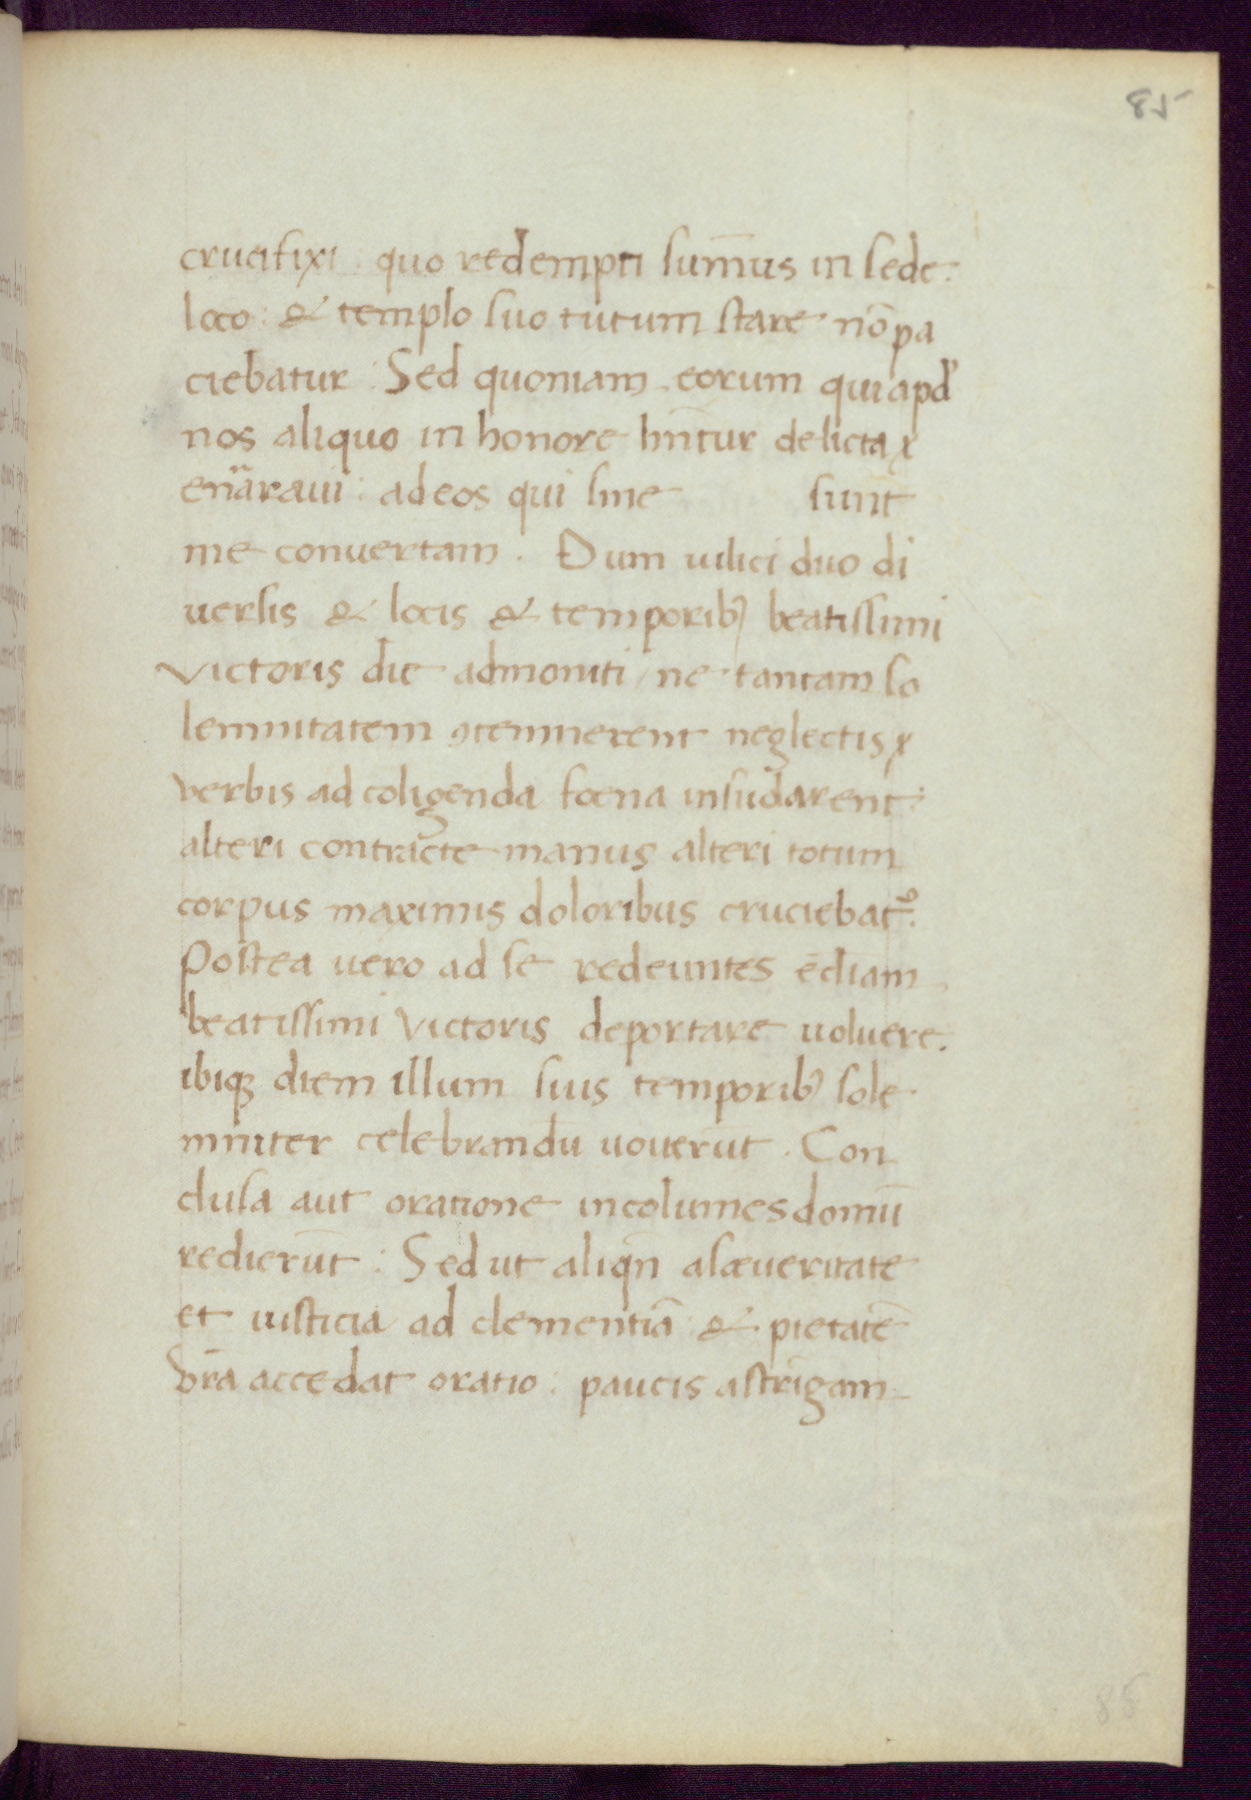 85
crucifixi: quo redempti sum̄us in sede:
loco: & templo suo tutum stare nō pa
ciebatur: Sed quoniam eorum qui apd'
nos aliquo in honore hn̄tur delicta
enarraui: ad eos qui sine sunt
me conuertam. Dum uilici duo di
uersis & locis & temporib) beatissimi
Victoris die admoniti / ne tantam so
lemnitatem ꝯtemnerent neglectis
verbis ad coligenda foena insudarent:
alteri contracte manus alteri totum
corpus maximis doloribus cruciebat͛.
Postea uero ad se redeuntes ēdiam
beatissimi Victoris deportare uoluere.
ibiqꝫ diem illum suis temporib) sole
mniter celebrandū uouerūt. Con
clusa aut oratione incolumes domū
redierūt: Sed ut aliqn̄ a sæueritate
et iusticia ad clementiā & pietatē
vr̄a accedat oratio: paucis astrigam
85